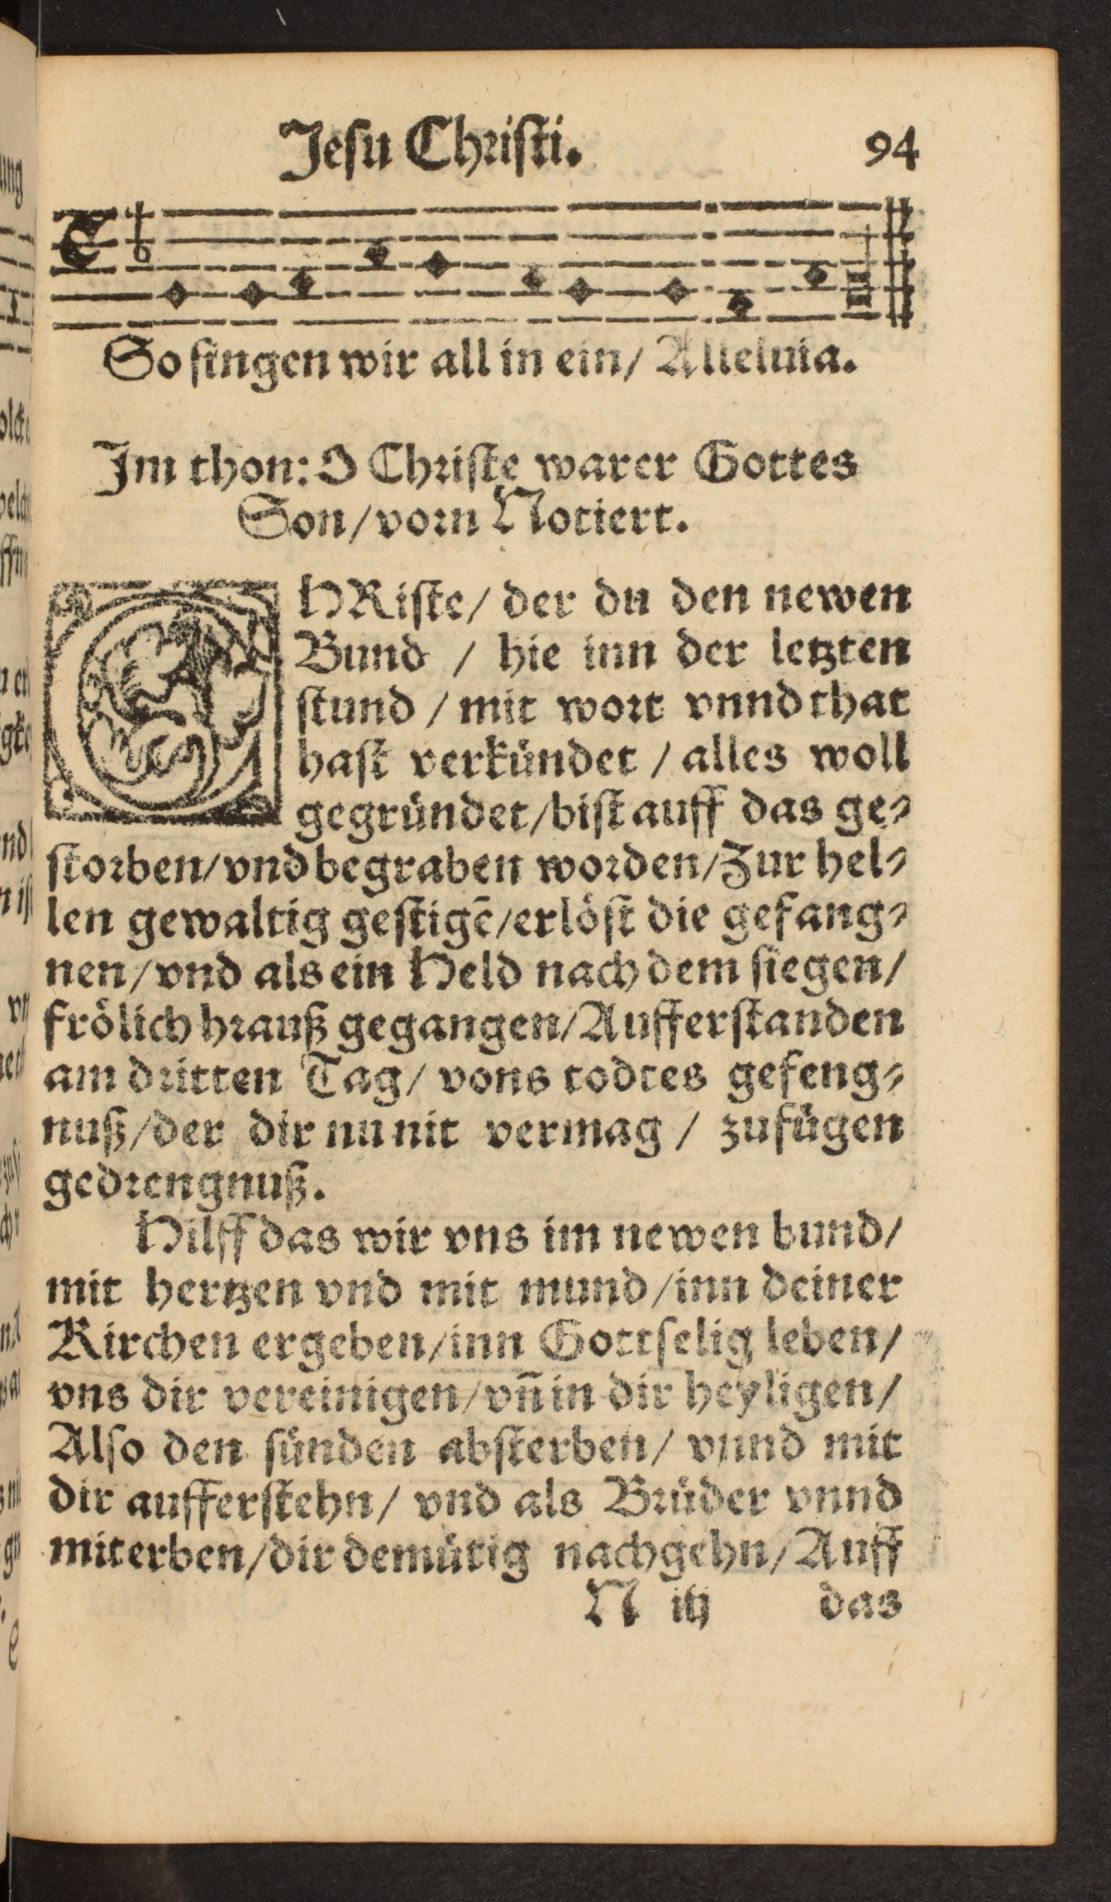 Jesu Christi. 94
So singen wir all in ein/ Alleluia.
Im thon: O Christe warer Gottes
Son/ vorn Notiert.
CHRiste/ der du den newen
Bund / hie inn der letzten
stund / mit wort vnnd that
hast verkündet / alles woll
gegründet/ bist auff das ge⸗
storben/ vnd begraben worden/ Zur hel⸗
len gewaltig gestigē/ erlöst die gefang⸗
nen/ vnd als ein Held nach dem siegen/
frölich hrauß gegangen/ Aufferstanden
am dritten Tag/ vons todtes gefeng⸗
nuß/ der dir nu nit vermag / zufügen
gedrengnuß.
Hilff das wir vns im newen bund/
mit hertzen vnd mit mund/ inn deiner
Kirchen ergeben/ inn Gottselig leben/
vns dir vereinigen/ vn̄ in dir heyligen/
Also den sünden absterben/ vnnd mit
dir aufferstehn/ vnd als Brüder vnnd
miterben/ dir demütig nachgehn/ Auff
N iij das